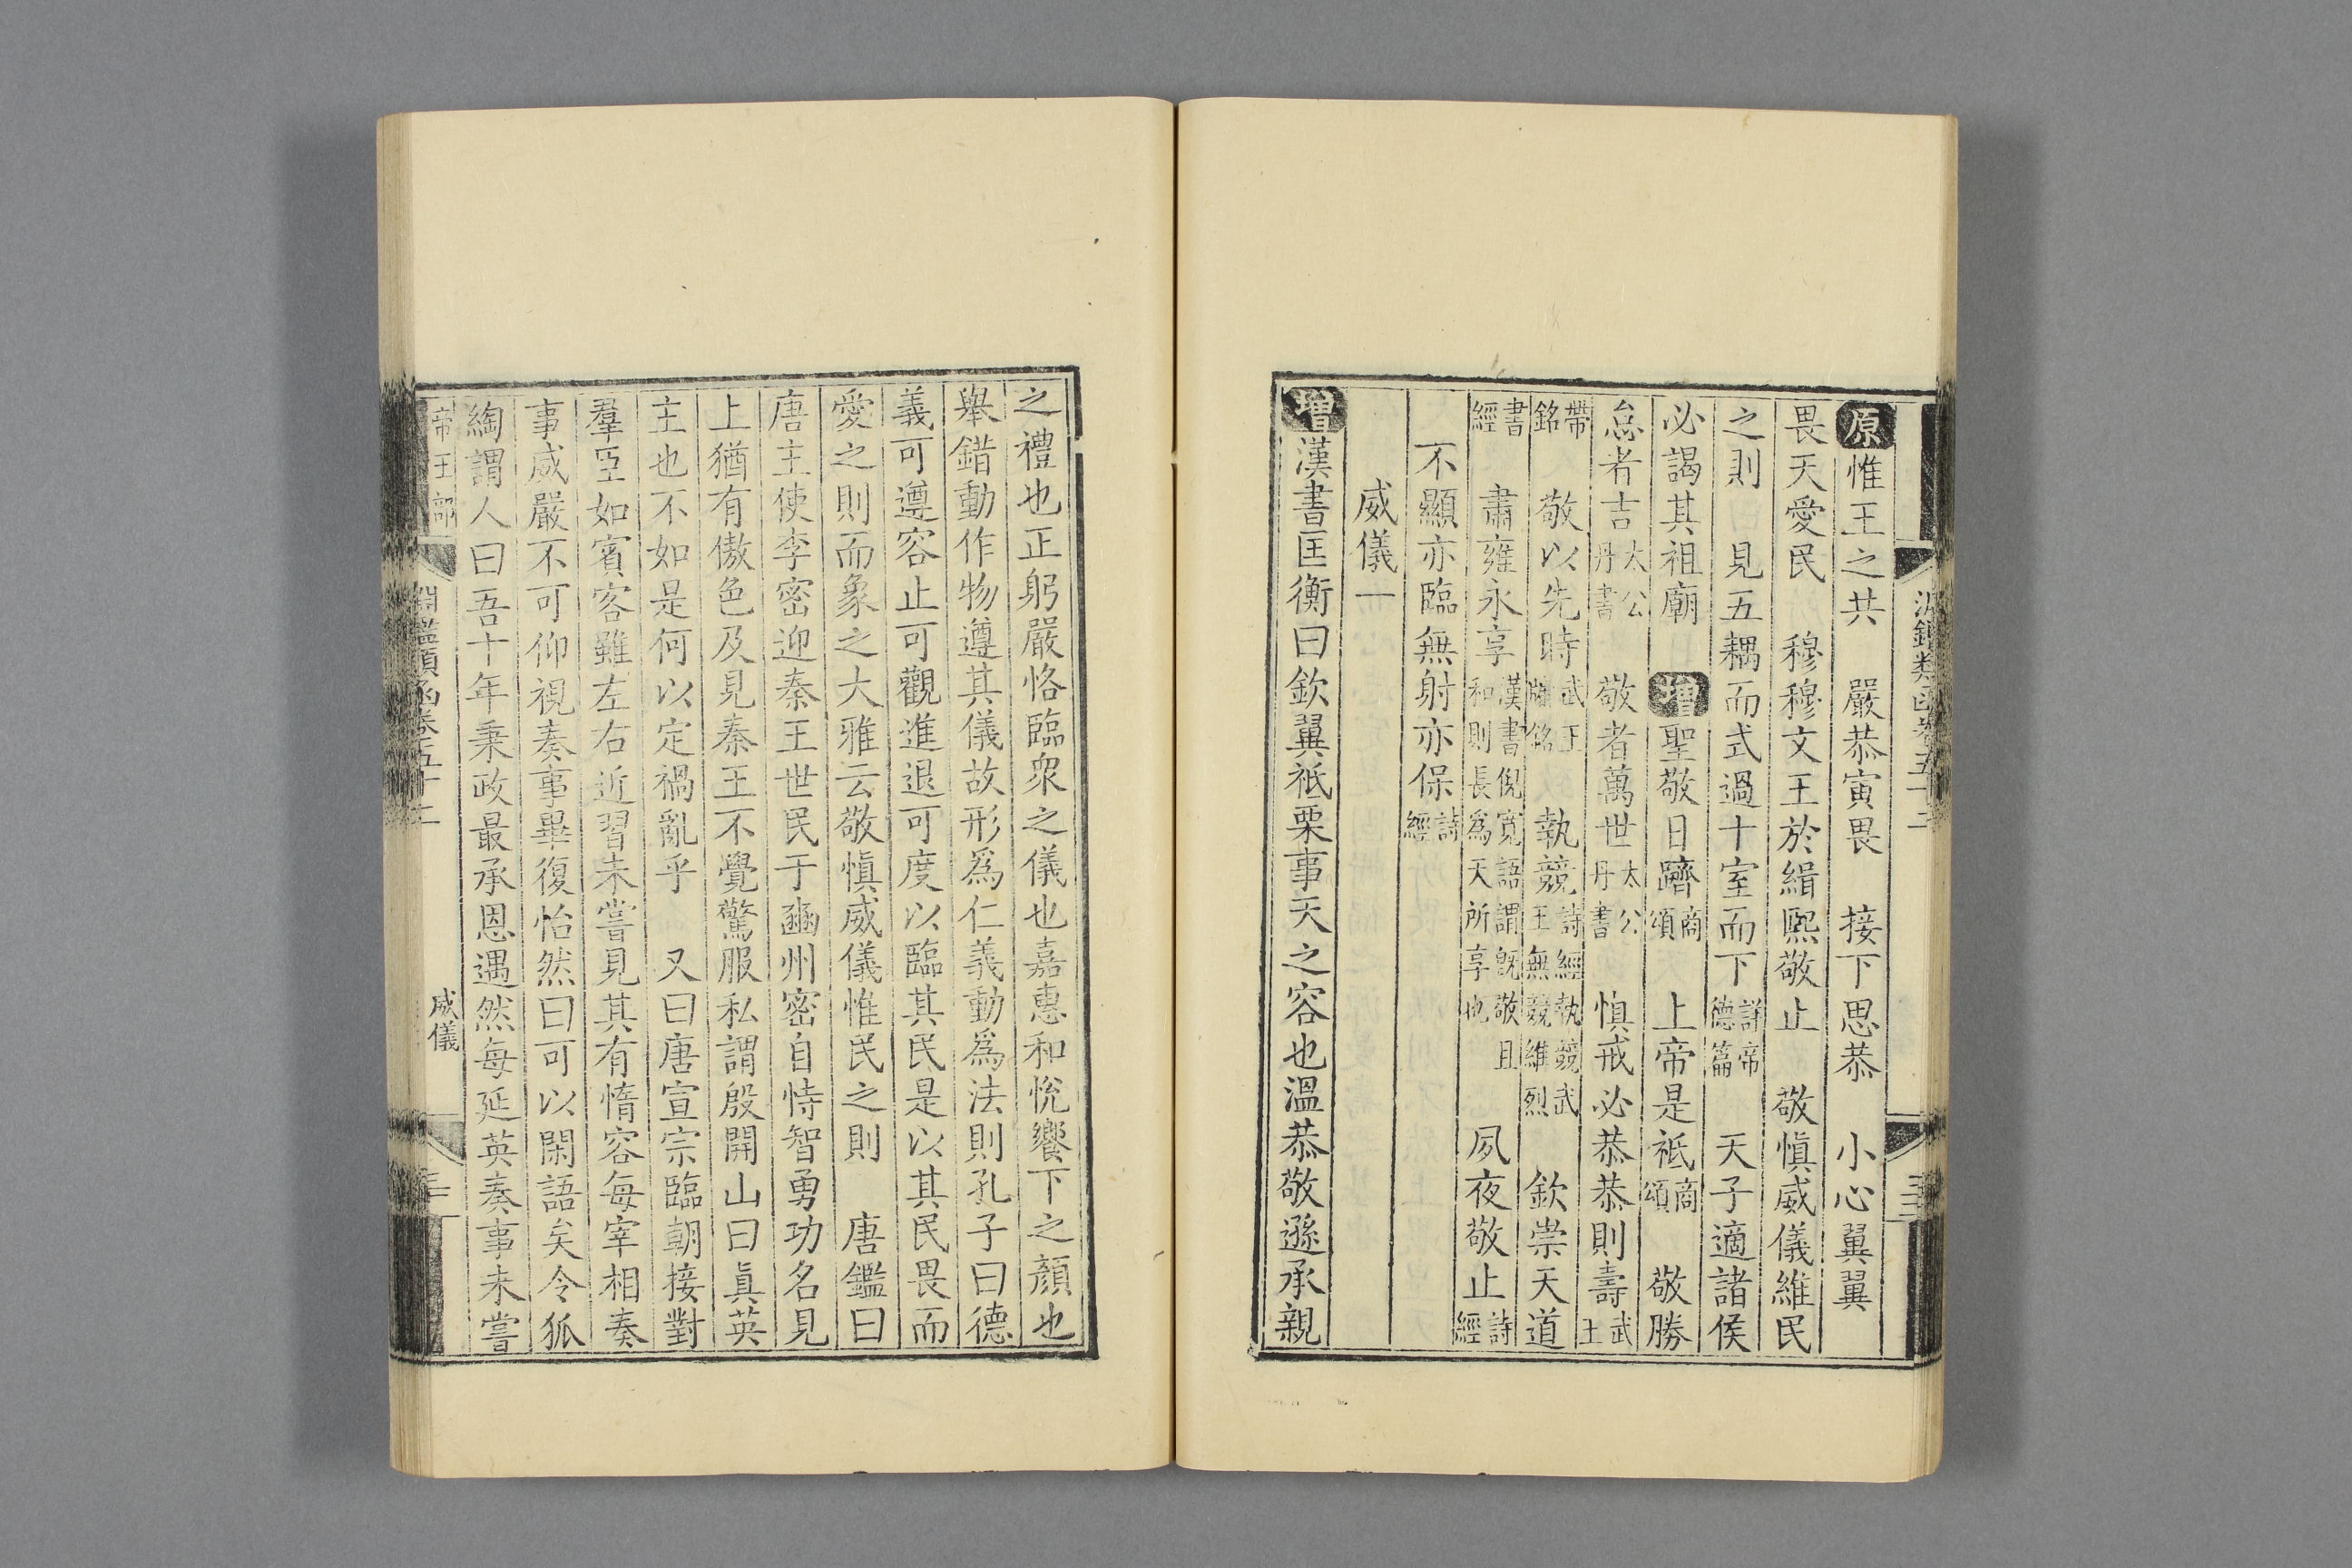 原惟王之共　嚴恭寅畏　接下思恭　小心翼翼
畏天愛民　穆穆文王於緝熙敬止　敬慎威儀維民
之則　見五耦而式過十室而下詳帝德篇　天子適諸侯
必謁其祖廟　增聖敬日躋商頌　上帝是祗商頌　敬勝
怠者吉太公丹書　敬者萬世太公丹書　慎戒必恭恭則壽武王
帶銘　敬以先時武王牖銘　執競詩經執競武王無競維烈　欽崇天道
書經　肅雍永享漢書倪寬語謂旣敬且和則長爲天所享也　夙夜敬止詩經
不顯亦臨無射亦保詩經
威儀一
增漢書匡衡曰欽翼祗栗事天之容也溫恭敬遜承親
之禮也正躬嚴恪臨眾之儀也嘉惠和悅饗下之顏也
舉錯動作物遵其儀故形爲仁義動爲法則孔子曰德
義可遵容止可觀進退可度以臨其民是以其民畏而
愛之則而象之大雅云敬慎威儀惟民之則　唐鑑曰
唐主使李密迎秦王世民于豳州密自恃智勇功名見
上猶有傲色及見秦王不覺驚服私謂殷開山曰眞英
主也不如是何以定禍亂乎　又曰唐宣宗臨朝接對
羣臣如賓客雖左右近習未嘗見其有惰容每宰相奏
事威嚴不可仰視奏事畢復怡然曰可以閑語矣令狐
綯謂人曰吾十年秉政最承恩遇然每延英奏事未嘗
帝王部
淵鑑類函卷五十二
威儀